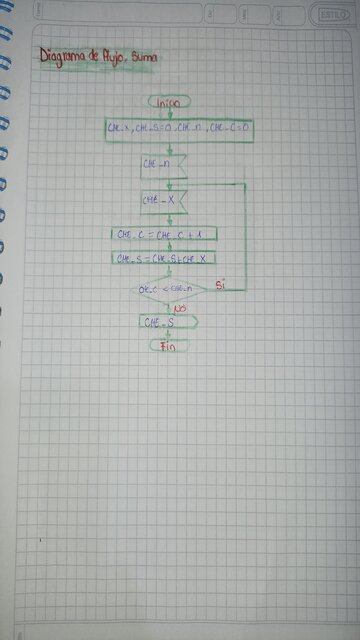 ESTILO
Diagrama de flujo. Suma
Inicio
CHE_X, CHE_S=0, CHE_n, CHE_C=0
CHE_n
CHE_X
CHE_C = CHE_C + 1
CHE_S = CHE_S + CHE_X
CHE_C < CHE_n
Si
NO
CHE_S
Fin